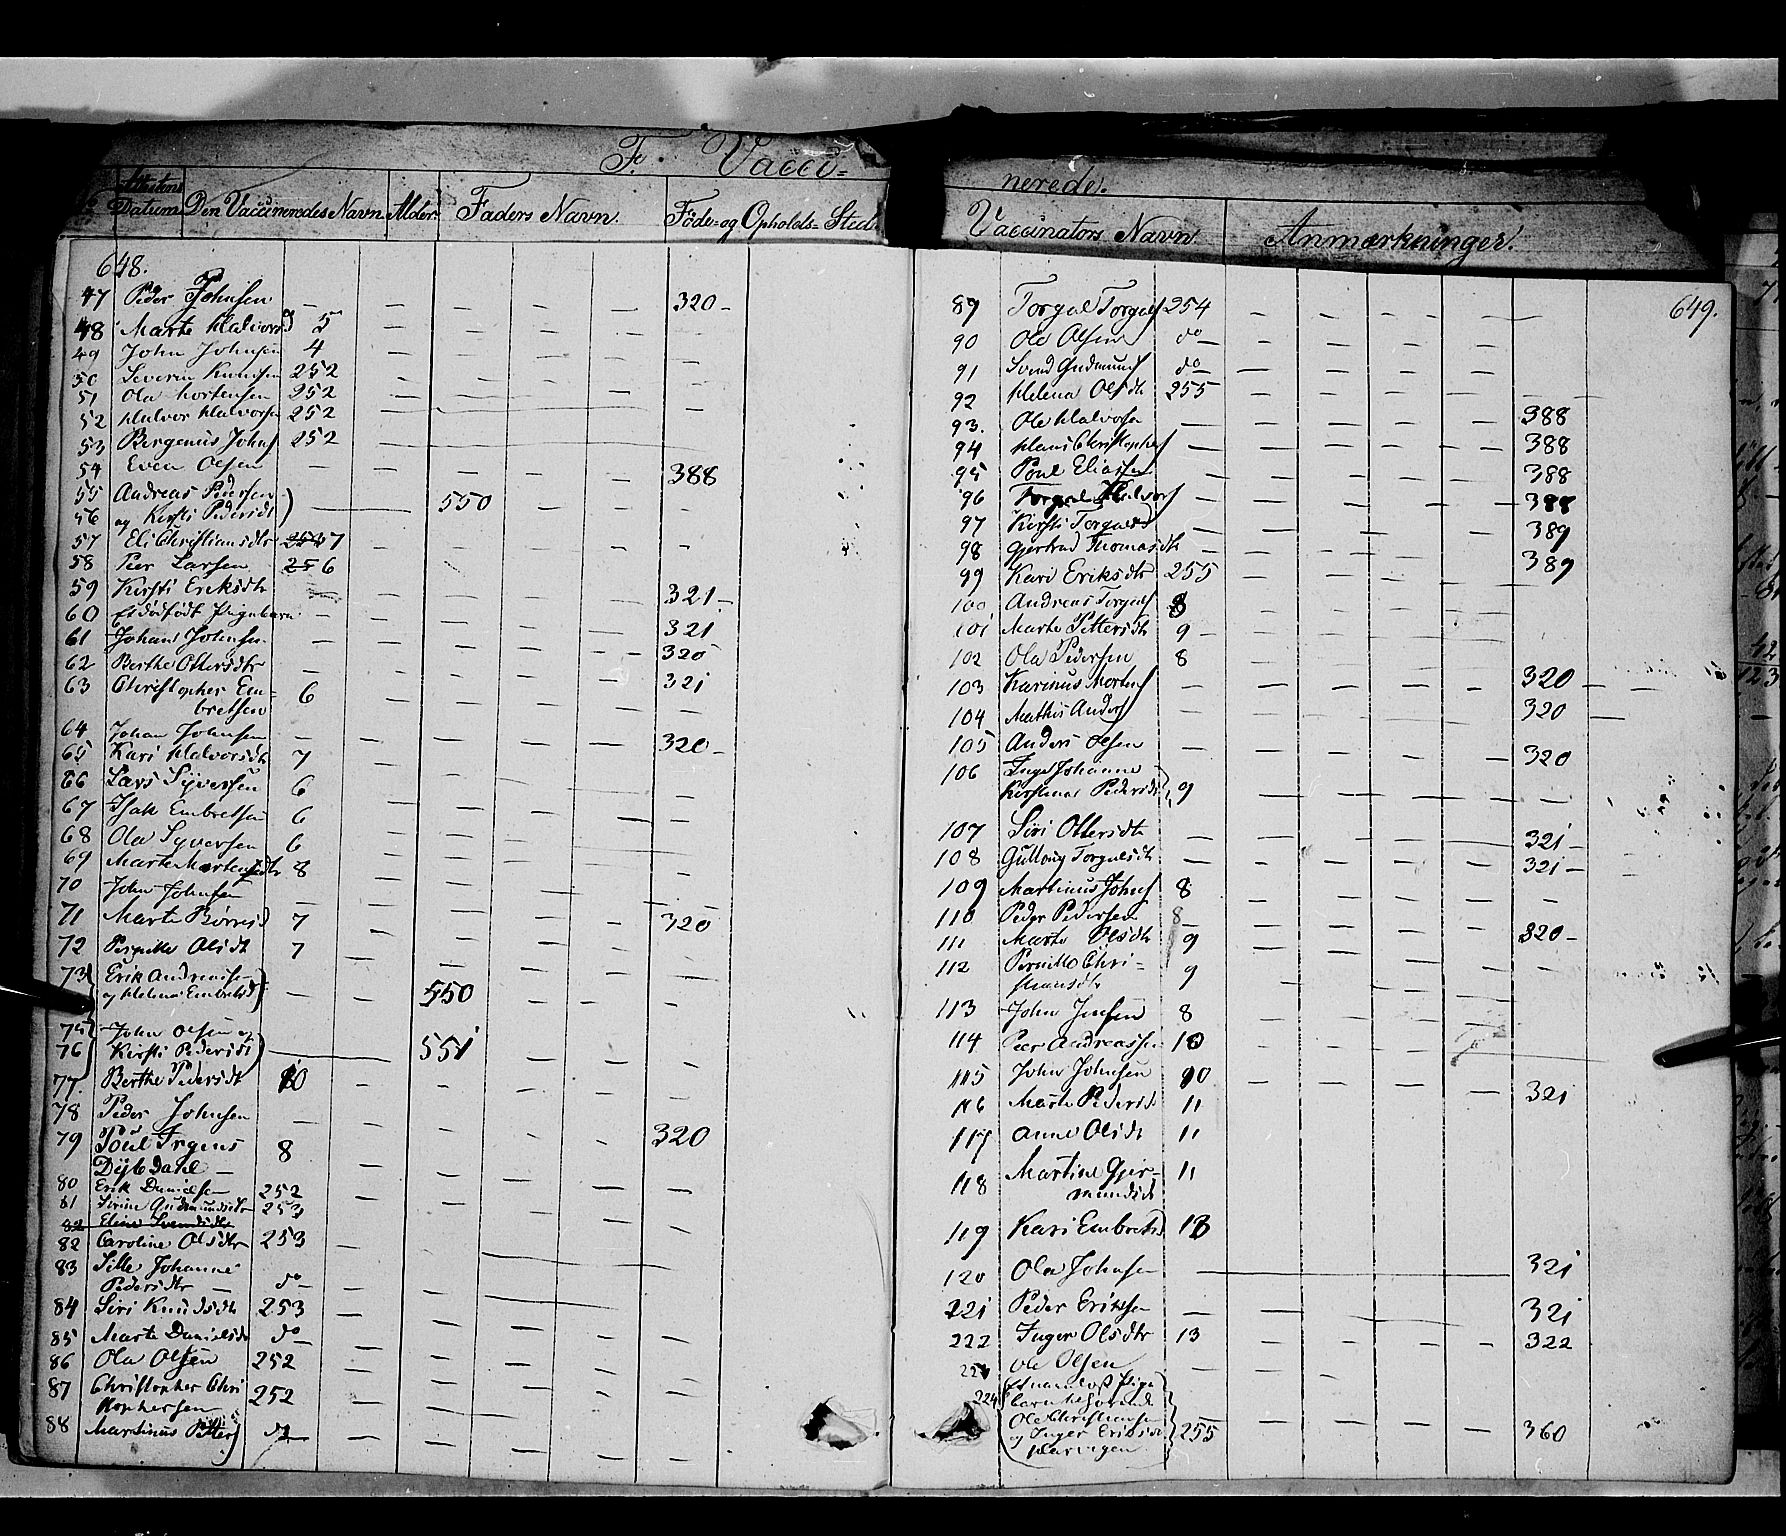 F. Vacci=
nerede.
Attestens Datum Den Vaccineredes Navn Alder Faders Navn Föde- og Opholds-Sted
Vaccinators Navn Anmærkninger.
648.
47 Peder Johnsen — — — — — 320 —
48 Marte Halvorsd 5
49 John Johnsen 4
50 Severin Knudsen 252
51 Ola Mortensen 252
52 Halvor Halvorsen 252
53 Bergenus Johns 252
54 Even Olsen — — — — — 388
55 Andreas Pedersen
56 og Kirsti Pedersdt — 550
57 Eli Christiansdtr 7
58 Peer Larsen 6
59 Kirsti Eriksdtr — 321 —
60 Et dödfödt Pigebarn — 321
61 Johan Johnsen — 320
62 Berthe Ottersdtr — 321
63 Christopher Em=
bretsen 6
64 Johan Johnsen — 320 —
65 Kari Halvorsdt 7
66 Lars Syversen 6
67 Isak Embretsen 6
68 Ola Syversen 6
69 Marte Mortensdtr 8
70 John Johnsen — 320
71 Marte Börresd 7
72 Pernille Olsdt 7
73 Erik Andreasen
og Helene Embretsd — 550
75 John Olsen og
76 Kirsti Pedersdt — 551
77 Berthe Pedersdt 10
78 Peder Johnsen — 320
79 Poul Irgens
Dybdahl — 8
80 Erik Danielsen 252
81 Sirine Gudmundsdtr 253
82 Eline Svendsdtr
82 Caroline Olsdtr 253
83 Sille Johanne
Pedersdtr — do —
84 Siri Knudsdt 253
85 Marte Danielsdt do —
86 Ola Olsen 252
87 Christopher Chri
stophersen 252
88 Martinus Pitters do
649.
89 Torgal Torgals 254
90 Ole Olsen do —
91 Svend Gudmunds do
92 Helena Olsdt 255
93. Ole Halvorsen — 388
94 Hans Christophers — 388
95 Poul Eliassen — 388
96 Torgal Halvors — 388
97 Kirsti Torgalsd — 389
98 Gjertrud Thomasdt — 389
99 Kari Eriksdtr 255
100 Andreas Torgals 8
101 Marte Pittersdt 9 —
102 Ola Pedersen 8
103 Karinus Mortens — 320
104 Mathis Anders — 320
105 Anders Olsen — 320
106 Inge Johanne
Kirstine Pedersdt 9
107 Siri Ottersdt — 321 —
108 Gullaug Torgalsdt — 321 —
109 Martinus Johns 8
110 Peder Pedersen 8 — 320 —
111 Marte Olsdtr 9
112 Pernille Chri=
stiansdtr 9
113 John Jensen 8
114 Peer Andreassen 10
115 John Johnsen 10 — 321
116 Marte Pedersd. 11
117 Anne Olsdt 11
118 Martine Gjer=
mundsdt 11
119 Kari Embretsd 13
120 Ola Johnsen — 321
221 Peder Eriksen — 321
222 Inger Olsdtr 13 — 322
Ole Olsen —
224
Ole Christiansen
og Inger Eriksdt 255 — 360